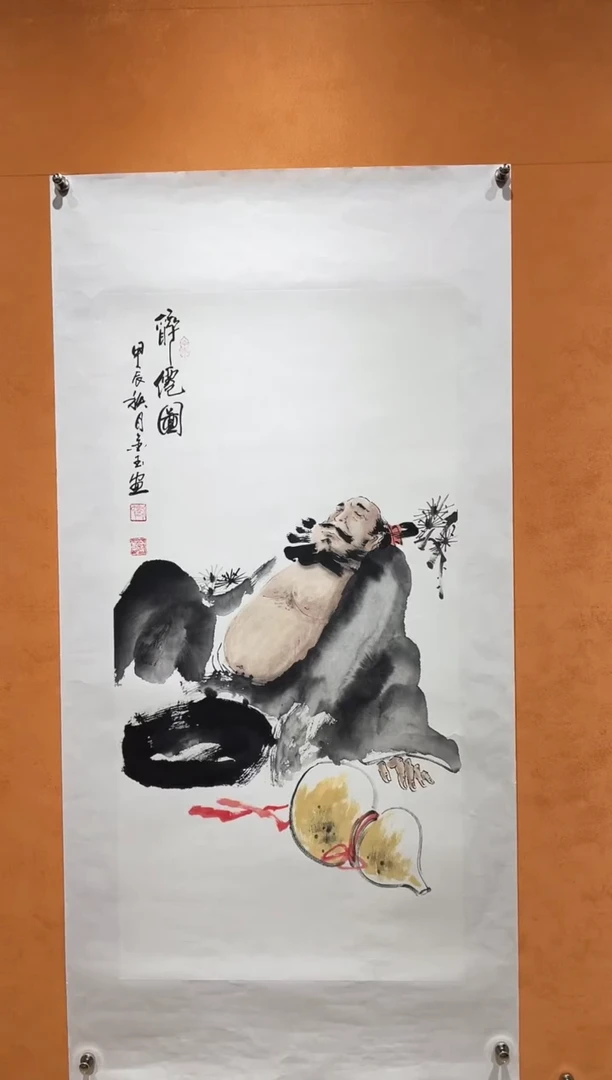 醉僊圖
甲辰秋月金玉画